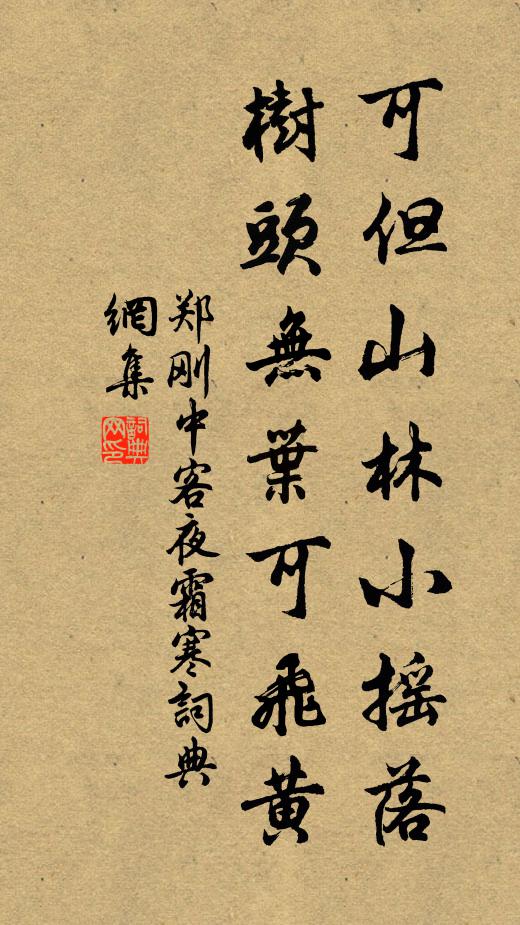 可但山林小摇落
樹頭無葉可飛黄
郑刚中客夜霜寒詞典
網集
詞典
网印